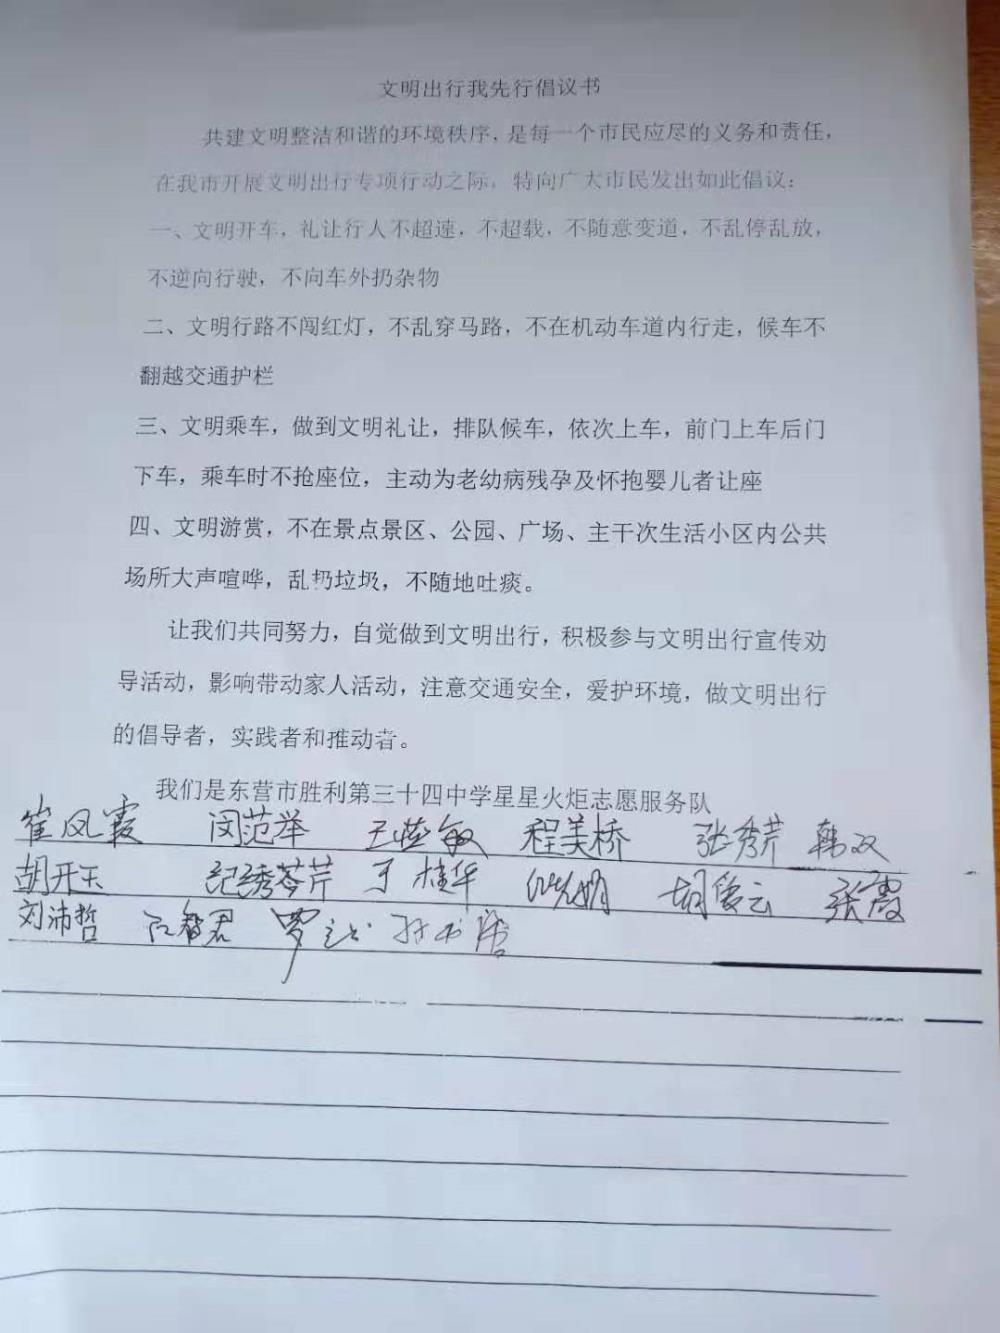 文明出行我先行倡议书
共建文明整洁和谐的环境秩序，是每一个市民应尽的义务和责任，
在我市开展文明出行专项行动之际，特向广大市民发出如此倡议：
一、文明开车，礼让行人不超速，不超载，不随意变道，不乱停乱放，
不逆向行驶，不向车外扔杂物
二、文明行路不闯红灯，不乱穿马路，不在机动车道内行走，候车不
翻越交通护栏
三、文明乘车，做到文明礼让，排队候车，依次上车，前门上车后门
下车，乘车时不抢座位，主动为老幼病残孕及怀抱婴儿者让座
四、文明游赏，不在景点景区、公园、广场、主干次生活小区内公共
场所大声喧哗，乱扔垃圾，不随地吐痰。
让我们共同努力，自觉做到文明出行，积极参与文明出行宣传劝
导活动，影响带动家人活动，注意交通安全，爱护环境，做文明出行
的倡导者，实践者和推动者。
我们是东营市胜利第三十四中学星星火炬志愿服务队
崔凤霞 闵范举 王燕敏 程美桥 张秀芹 韩双
胡开玉 于桂华 张霞
刘沛哲